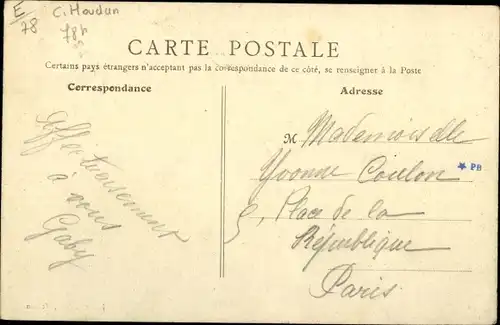 E
78
C. Houdan
78h
CARTE POSTALE
Certains pays étrangers n'acceptant pas la correspondance de ce côté, se renseigner à la Poste
Correspondance
Adresse
Affectueusement
à vous
Gaby
M Mademoiselle
Yvonne Coulon
PB
8, Place de la
République
Paris